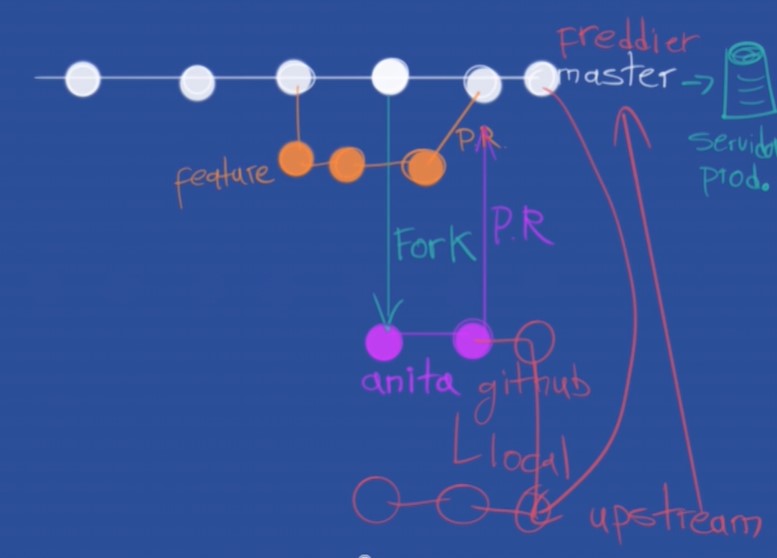 freddier
master
P.R.
Servidor
prod.
feature
Fork
P.R
anita
github
local
upstream